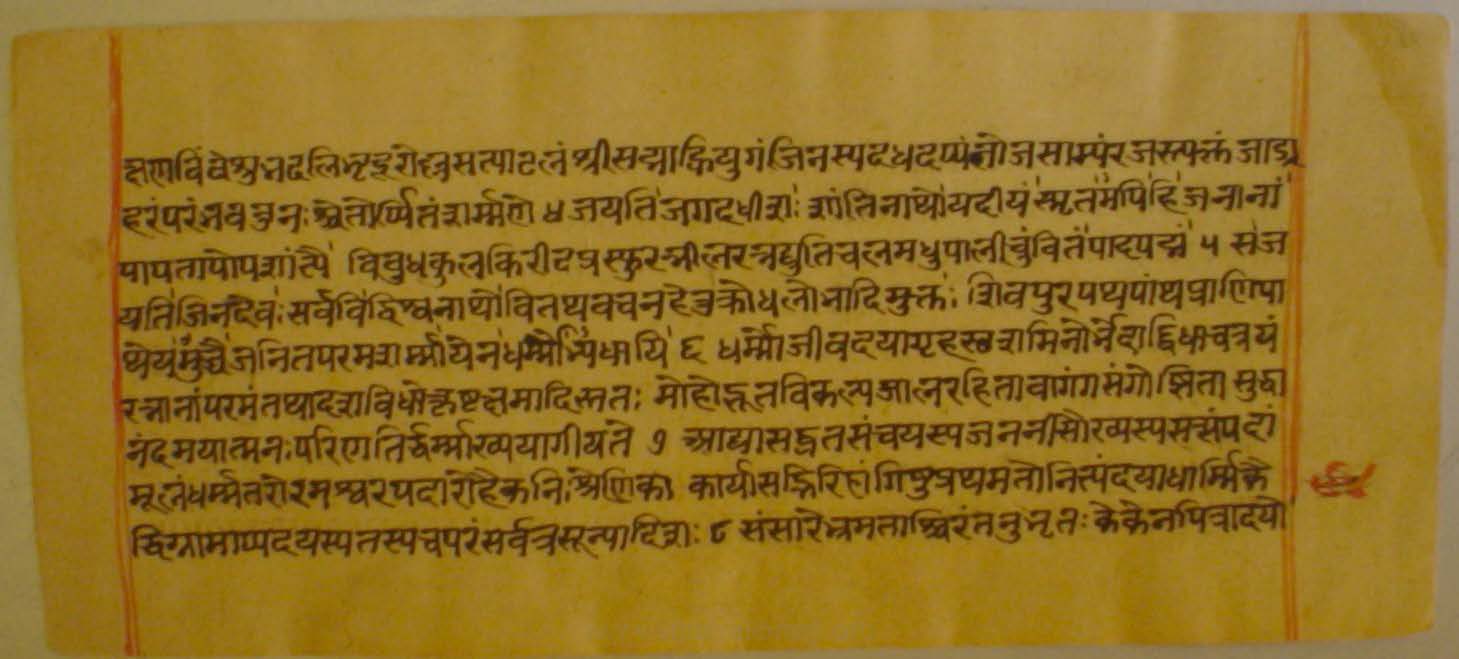 क्षणविंबेशुभदलिभृद्दूरोल्लसत्पाटलं श्रीसद्माङ्घ्रियुगं जिनस्य दधदप्यंभोजसाम्यं रजस्त्यक्तं जाड्य
हरं परं भवतु नः श्चेतोर्प्पितं शर्म्मणे ५ जयति जगदधीशः शांतिनाथो यदीयं स्मृतमपि हि जनानां
पापतापोपशांत्यै विबुधकुलकिरीटप्रस्फुरन्नीलरत्नद्युतिचलमधुपालीचुंबितं पादपद्मं ५ स ज
यति जिनदेवः सर्वविद्विश्वनाथो वितथवचनहेतुक्रोधलोभादिमुक्तः शिवपुरपथपांथप्राणिपा
थेयमुच्चैर्जनितपरमशर्म्मा येन धर्म्मोभ्यधायि ६ धर्म्मो जीवदया गृहस्थशमिनोर्भेदाद्द्विधा च त्रयं
रत्नानां परमं तथा दशविधोत्कृष्टक्षमादिस्ततः मोहोद्भूतविकल्पजालरहिता वागंगसंगोज्झिता सुद्धा
नंदमयात्मनः परिणतिर्द्धर्म्माख्यया गीयते ७ आद्या सद्व्रतसंचयस्य जननी सौख्यस्य सत्संपदां
मूलं धर्म्मतरोरनश्वरपदारोहैकनिःश्रेणिका कार्या सद्भिरिहांगिषु प्रथमतो नित्यं दया धार्म्मिकै
र्द्धिग्नामाप्यदयस्य तस्य च परं सर्वत्र सून्या दिशः ८ संसारे भ्रमतश्चिरं तनुभृतः के के न पित्रादयो